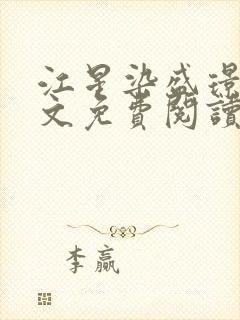 江星染盛璟
文免費閱讀
李贏